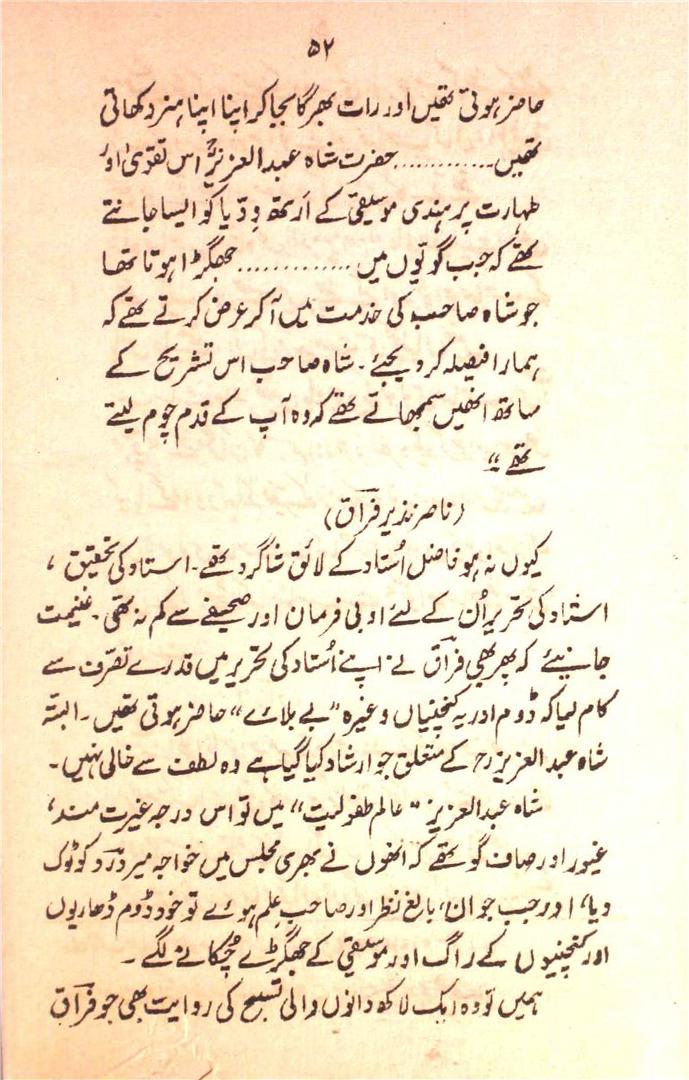 ۵۲
حاضر ہوتی تھیں اور رات بھر گا بجا کر اپنا اپنا ہنر دکھاتی
تھیں ............ حضرت شاہ عبدالعزیزؒ اس تقویٰ اور
طہارت پر ہندی موسیقی کے اَرتھ وِدّیا کو ایسا جانتے
تھے کہ جب گویّوں میں ............. جھگڑا ہوتا تھا
جو شاہ صاحب کی خدمت میں آکر عرض کرتے تھے کہ
ہمارا فیصلہ کر دیجئے۔ شاہ صاحب اس تشریح کے
ساتھ انھیں سمجھاتے تھے کہ وہ آپ کے قدم چوم لیتے
تھے"
(ناصر نذیر فراقؔ)
کیوں نہ ہو فاضل اُستاد کے لائق شاگرد تھے۔ استاد کی تحقیق ،
استاد کی تحریر اُن کے لئے ادبی فرمان اور صحیفے سے کم نہ تھی۔ غنیمت
جانیئے کہ پھر بھی فراقؔ نے اپنے اُستاد کی تحریر میں قدرے تصرف سے
کام لیا کہ ڈوم اور یہ کنچنیاں وغیرہ "بے بلائے" حاضر ہوتی تھیں۔ البتہ
شاہ عبدالعزیز رح کے متعلق جو ارشاد کیا گیا ہے وہ لطف سے خالی نہیں۔
شاہ عبدالعزیز "عالم طفولیت" میں تو اس درجہ غیرت مند،
غیور اور صاف گو تھے کہ انھوں نے بھری مجلس میں خواجہ میر دردؔ کو ٹوک
دیا، اور جب جوان، بالغ نظر اور صاحب عِلم ہوئے تو خود ڈوم ڈھاریوں
اور کنچنیوں کے راگ اور موسیقی کے جھگڑے چُکانے لگے۔
ہمیں تو وہ ایک لاکھ دانوں والی تسبیح کی روایت بھی جو فراقؔ